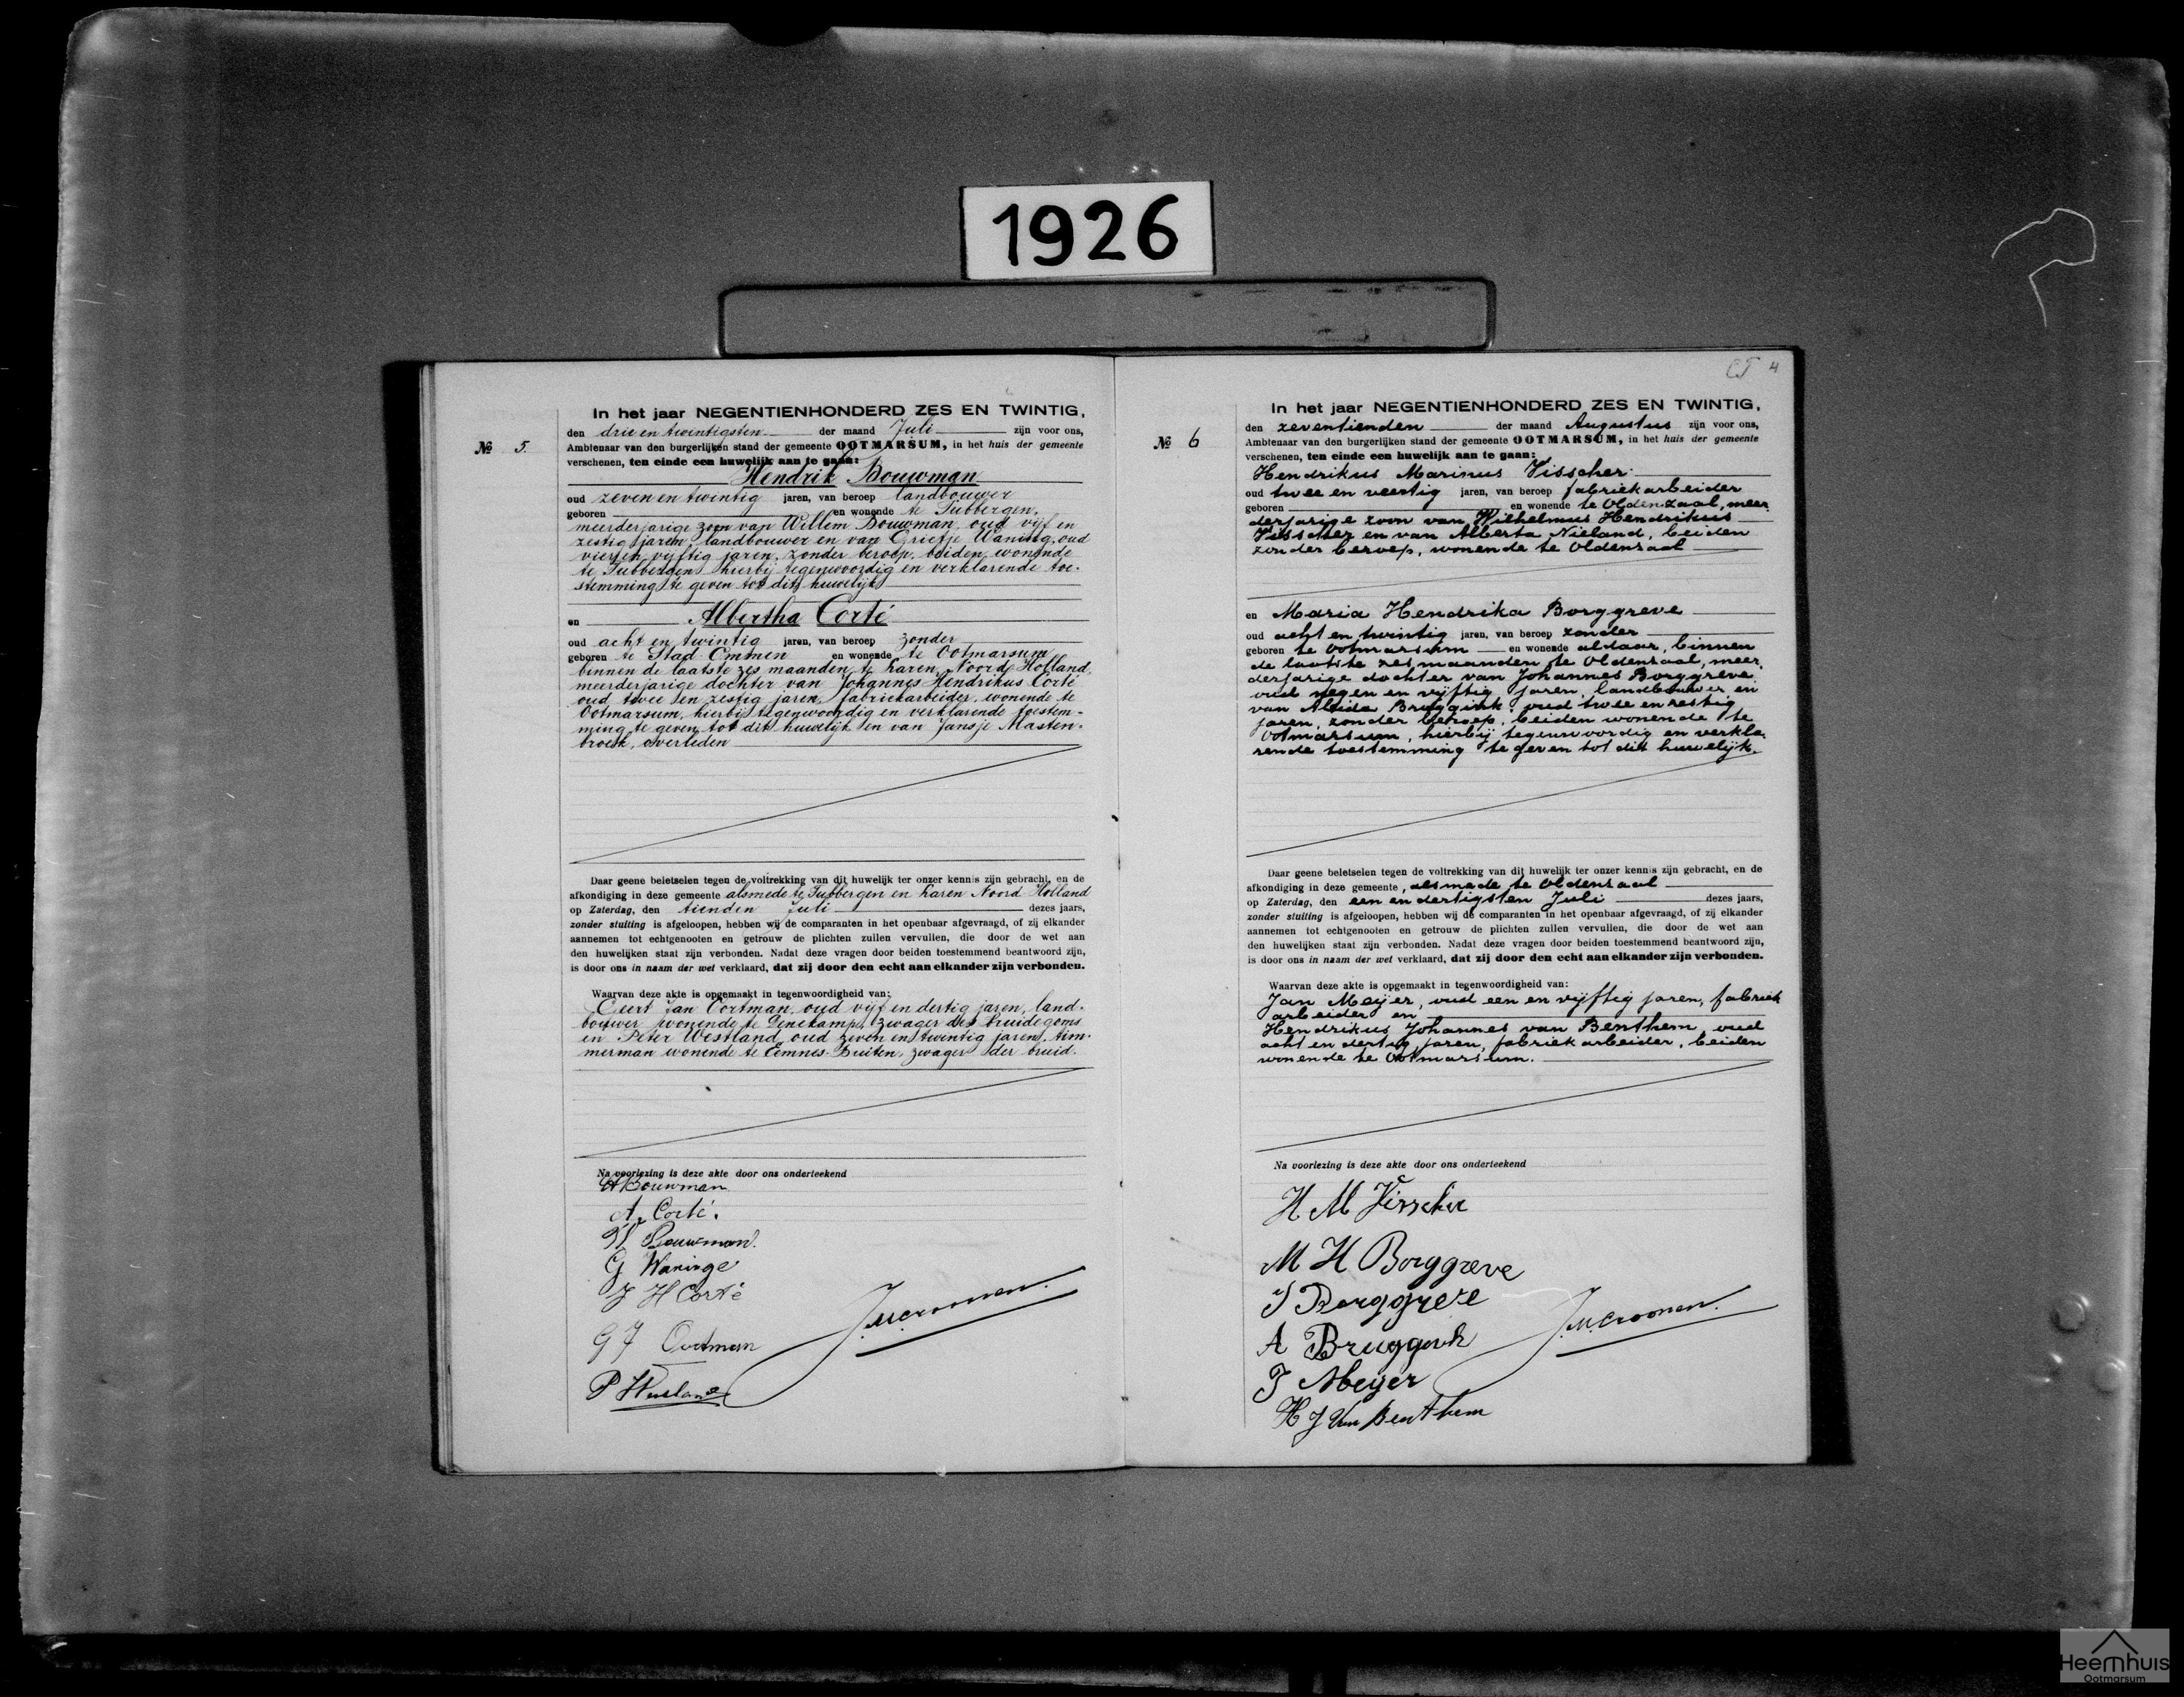 1926
In het jaar NEGENTIENHONDERD ZES EN TWINTIG,
den drie en twintigsten der maand Juli zijn voor ons,
No 5.
Ambtenaar van den burgerlijken stand der gemeente OOTMARSUM, in het huis der gemeente
verschenen, ten einde een huwelijk aan te gaan:
Hendrik Bouwman
oud zeven en twintig jaren, van beroep landbouwer
geboren en wonende te Tubbergen,
meerderjarige zoon van Willem Bouwman, oud vijf en
zestig jaren, landbouwer en van Grietje Waning, oud
vier en vijftig jaren, zonder beroep, beiden wonende
te Tubbergen hierbij tegenwoordig en verklarende toe-
stemming te geven tot dit huwelijk
en Albertha Corté
oud acht en twintig jaren, van beroep zonder
geboren te Stad Ommen en wonende te Ootmarsum
binnen de laatste zes maanden te Laren, Noord Holland,
meerderjarige dochter van Johannes Hendrikus Corté
oud twee en zestig jaren, fabriekarbeider, wonende te
Ootmarsum, hierbij tegenwoordig en verklarende toestem-
ming te geven tot dit huwelijk en van Jansje Masten-
broek, overleden
Daar geene beletselen tegen de voltrekking van dit huwelijk ter onzer kennis zijn gebracht, en de
afkondiging in deze gemeente alsmede te Tubbergen en Laren Noord Holland
op Zaterdag, den tienden Juli dezes jaars,
zonder stuiting is afgeloopen, hebben wij de comparanten in het openbaar afgevraagd, of zij elkander
aannemen tot echtgenooten en getrouw de plichten zullen vervullen, die door de wet aan
den huwelijken staat zijn verbonden. Nadat deze vragen door beiden toestemmend beantwoord zijn,
is door ons in naam der wet verklaard, dat zij door den echt aan elkander zijn verbonden.
Waarvan deze akte is opgemaakt in tegenwoordigheid van:
Geert Jan Oortman, oud vijf en dertig jaren, land-
bouwer wonende te Denekamp, zwager des bruidegoms
en Peter Westland, oud zeven en twintig jaren, tim-
merman wonende te Eemnes-Buiten, zwager der bruid.
Na voorlezing is deze akte door ons onderteekend
H Bouwman
A. Corté.
W Bouwman.
G Waninge
J H Corté
G J Oortman
P Westland
J.M.Croonen.
CT 4
In het jaar NEGENTIENHONDERD ZES EN TWINTIG,
den zeventienden der maand Augustus zijn voor ons,
No 6
Ambtenaar van den burgerlijken stand der gemeente OOTMARSUM, in het huis der gemeente
verschenen, ten einde een huwelijk aan te gaan:
Hendrikus Marinus Visscher
oud twee en veertig jaren, van beroep fabriekarbeider
geboren en wonende te Oldenzaal, meer-
derjarige zoon van Wilhelmus Hendrikus
Visscher en van Alberta Nieland, beiden
zonder beroep, wonende te Oldenzaal
en Maria Hendrika Borggreve
oud acht en twintig jaren, van beroep zonder
geboren te Ootmarsum en wonende aldaar, binnen
de laatste zes maanden te Oldenzaal, meer-
derjarige dochter van Johannes Borggreve
oud negen en vijftig jaren, landbouwer en
van Aleida Bruggink, oud twee en zestig
jaren, zonder beroep, beiden wonende te
Ootmarsum, hierbij tegenwoordig en verkla-
rende toestemming te geven tot dit huwelijk.
Daar geene beletselen tegen de voltrekking van dit huwelijk ter onzer kennis zijn gebracht, en de
afkondiging in deze gemeente, alsmede te Oldenzaal
op Zaterdag, den een en dertigsten Juli dezes jaars,
zonder stuiting is afgeloopen, hebben wij de comparanten in het openbaar afgevraagd, of zij elkander
aannemen tot echtgenooten en getrouw de plichten zullen vervullen, die door de wet aan
den huwelijken staat zijn verbonden. Nadat deze vragen door beiden toestemmend beantwoord zijn,
is door ons in naam der wet verklaard, dat zij door den echt aan elkander zijn verbonden.
Waarvan deze akte is opgemaakt in tegenwoordigheid van:
Jan Meijer, oud een en vijftig jaren, fabriek
arbeider en
Hendrikus Johannes van Benthem, oud
acht en dertig jaren, fabriekarbeider, beiden
wonende te Ootmarsum.
Na voorlezing is deze akte door ons onderteekend
H M Visscher
M H Borggreve
J Borggreve
A Bruggink
J Meijer
H J Van Benthem
J.M.Croonen.
Heemhuis
Ootmarsum